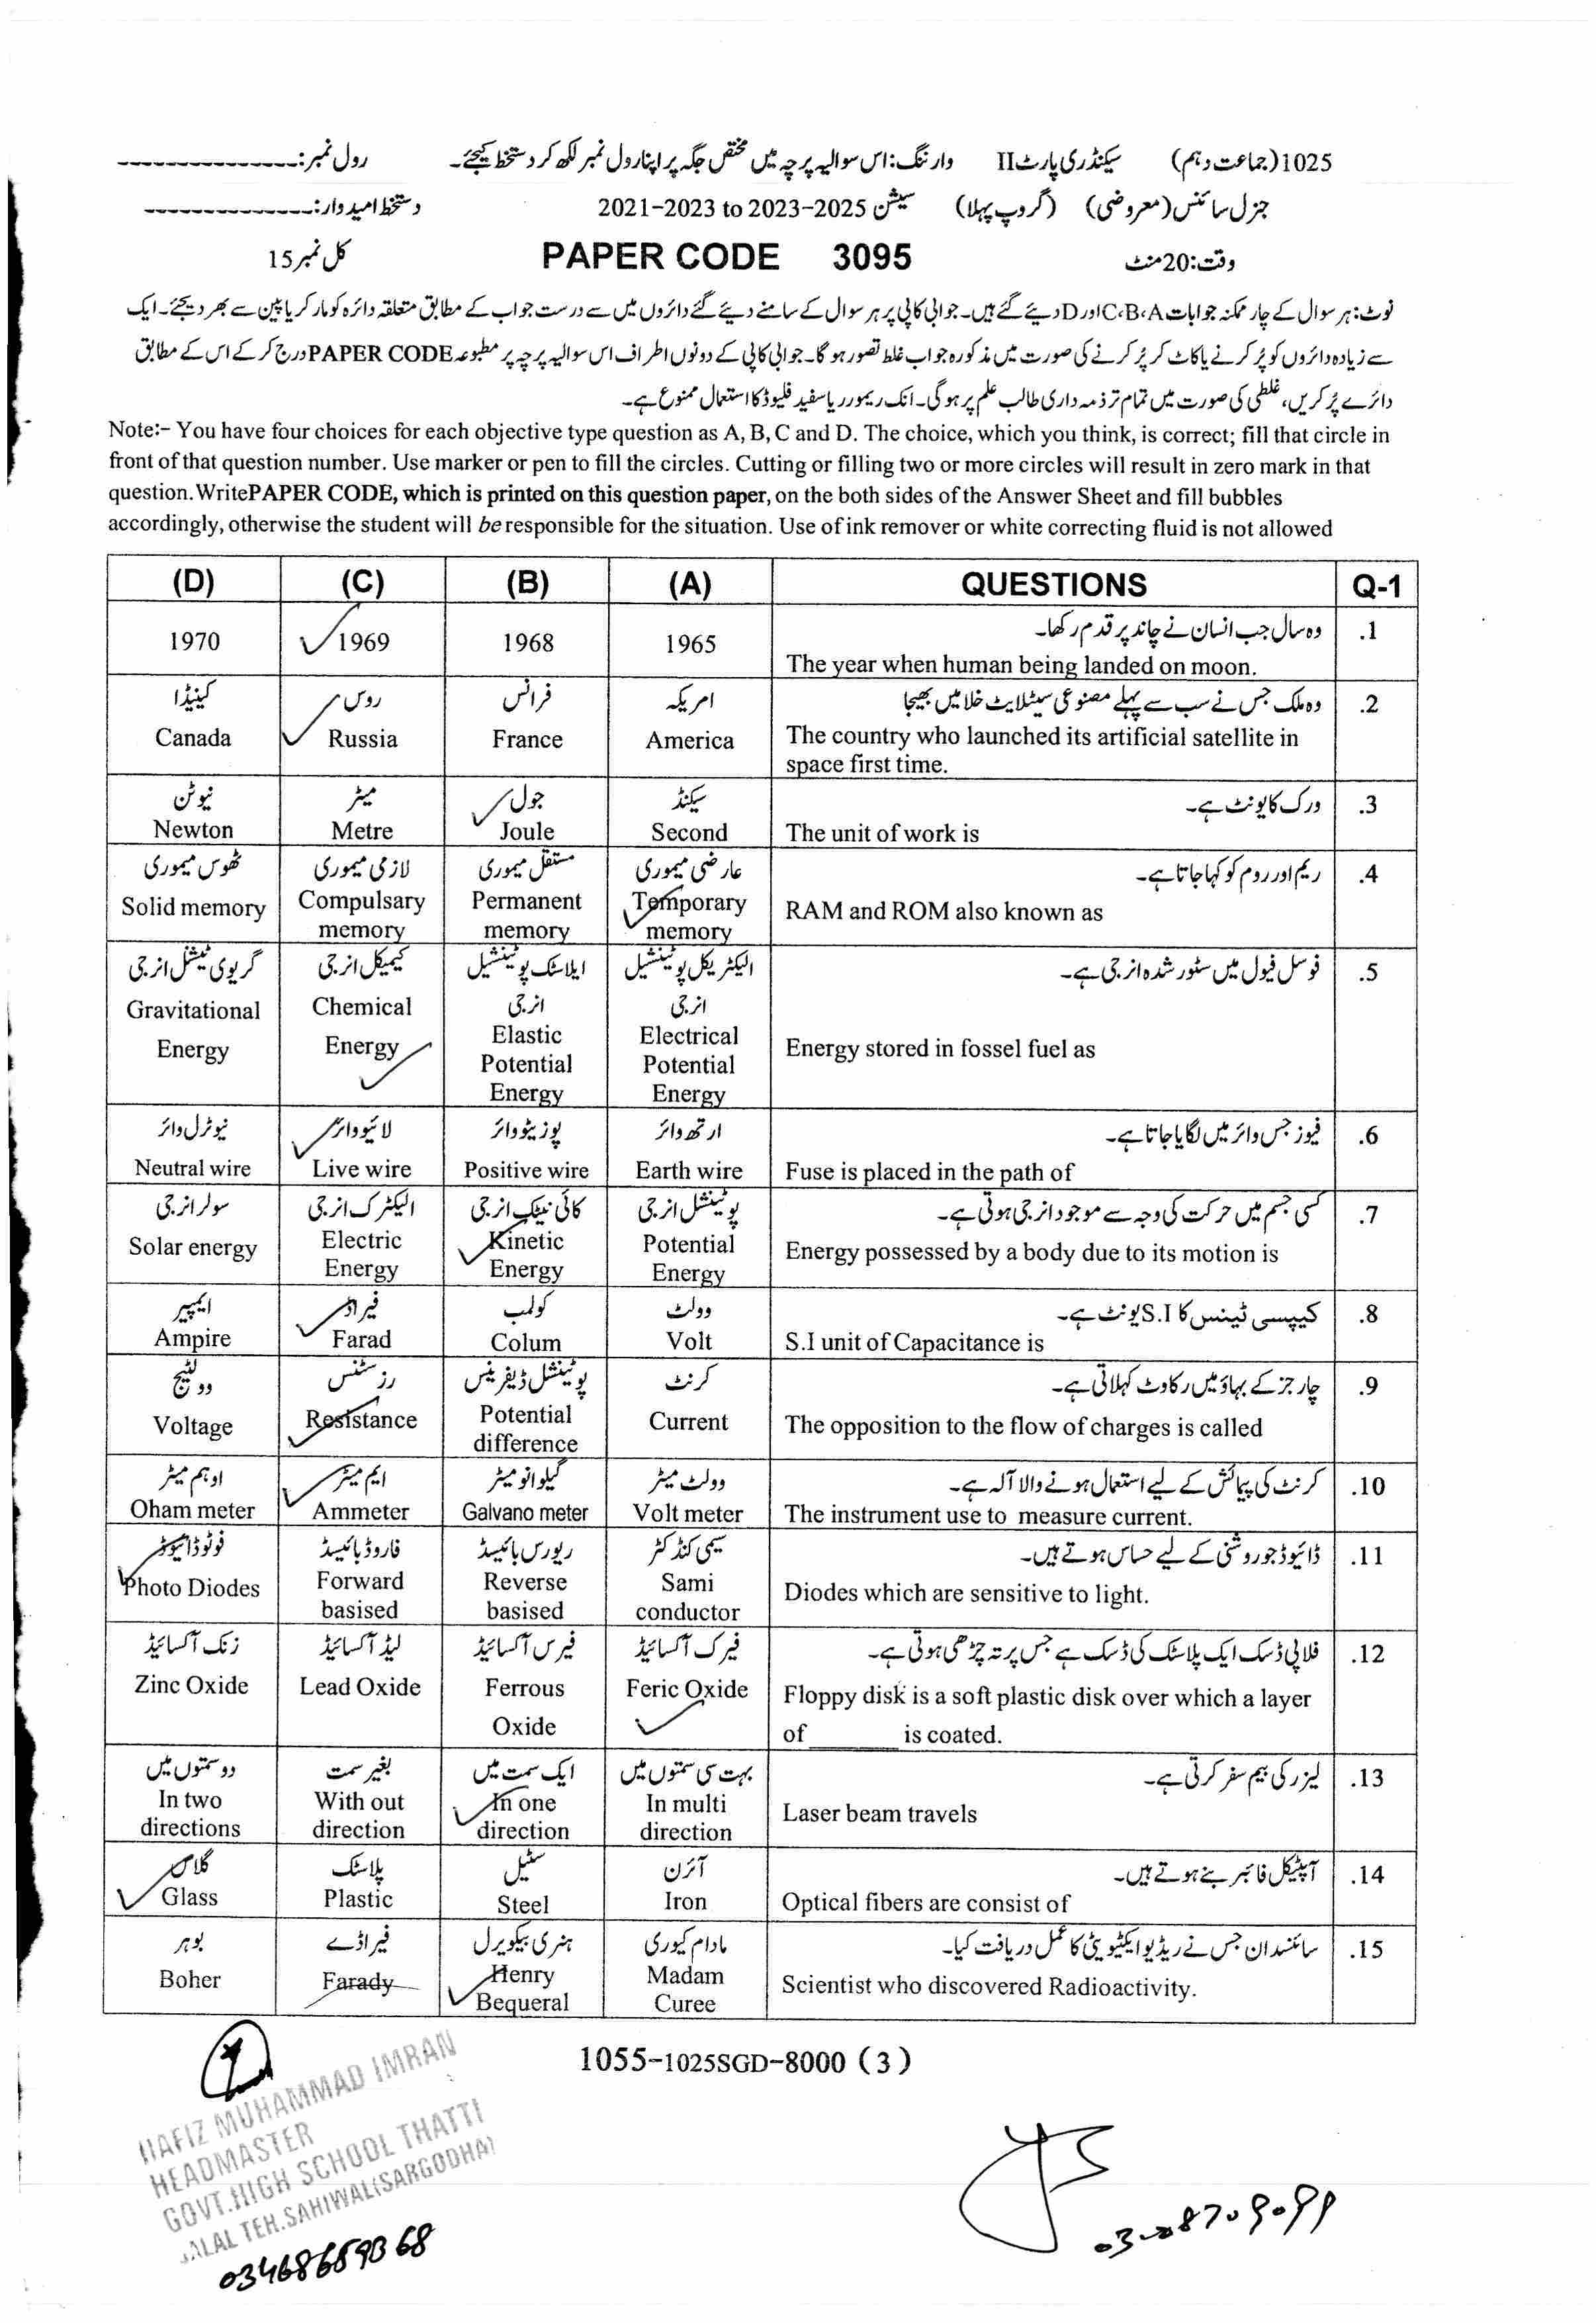 1025(جماعت دہم) سیکنڈری پارٹ II وارننگ:اس سوالیہ پرچہ میں مختص جگہ پر اپنا رول نمبر لکھ کر دستخط کیجئے۔ رول نمبر:---------------
جنرل سائنس(معروضی) (گروپ پہلا) سیشن 2021-2023 to 2023-2025 دستخط امیدوار:--------------
وقت:20منٹ PAPER CODE 3095 کل نمبر15
نوٹ:ہر سوال کے چار ممکنہ جوابات C،B،A اور D دیئے گئے ہیں۔جوابی کاپی پر ہر سوال کے سامنے دیئے گئے دائروں میں سے درست جواب کے مطابق متعلقہ دائرہ کو مارکر یا پین سے بھر دیجئے۔ایک
سے زیادہ دائروں کو پُر کرنے یا کاٹ کر پُر کرنے کی صورت میں مذکورہ جواب غلط تصور ہو گا۔جوابی کاپی کے دونوں اطراف اس سوالیہ پرچہ پر مطبوعہ PAPER CODE درج کر کے اس کے مطابق
دائرے پُر کریں،غلطی کی صورت میں تمام تر ذمہ داری طالب علم پر ہوگی۔انک ریمورر یا سفید فلیوڈ کا استعمال ممنوع ہے۔
Note:- You have four choices for each objective type question as A, B, C and D. The choice, which you think, is correct; fill that circle in
front of that question number. Use marker or pen to fill the circles. Cutting or filling two or more circles will result in zero mark in that
question.WritePAPER CODE, which is printed on this question paper, on the both sides of the Answer Sheet and fill bubbles
accordingly, otherwise the student will be responsible for the situation. Use of ink remover or white correcting fluid is not allowed
(D) (C) (B) (A) QUESTIONS Q-1
وہ سال جب انسان نے چاند پر قدم رکھا۔ .1
1970 1969 1968 1965
The year when human being landed on moon.
کینیڈا روس فرانس امریکہ وہ ملک جس نے سب سے پہلے مصنوعی سیٹلائیٹ خلا میں بھیجا .2
Canada Russia France America The country who launched its artificial satellite in
space first time.
نیوٹن میٹر جول سیکنڈ ورک کا یونٹ ہے۔ .3
Newton Metre Joule Second The unit of work is
ٹھوس میموری لازمی میموری مستقل میموری عارضی میموری ریم اور روم کو کہا جاتا ہے۔ .4
Solid memory Compulsary Permanent Temporary RAM and ROM also known as
memory memory memory
گریوی ٹیشنل انرجی کیمیکل انرجی ایلاسٹک پوٹینشیل الیکٹریکل پوٹینشیل فوسل فیول میں سٹور شدہ انرجی ہے۔ .5
انرجی انرجی
Gravitational Chemical Elastic Electrical
Energy Energy Potential Potential Energy stored in fossel fuel as
Energy Energy
نیوٹرل وائر لائیو وائر پوزیٹو وائر ارتھ وائر فیوز جس وائر میں لگایا جاتا ہے۔ .6
Neutral wire Live wire Positive wire Earth wire Fuse is placed in the path of
سولر انرجی الیکٹرک انرجی کائی نیٹک انرجی پوٹینشل انرجی کسی جسم میں حرکت کی وجہ سے موجود انرجی ہوتی ہے۔ .7
Solar energy Electric Kinetic Potential Energy possessed by a body due to its motion is
Energy Energy Energy
ایمپیر فیراڈ کولمب وولٹ کیپسی ٹینس کا S.I یونٹ ہے۔ .8
Ampire Farad Colum Volt S.I unit of Capacitance is
وولٹیج رزسٹنس پوٹینشل ڈیفرینس کرنٹ چارجز کے بہاؤ میں رکاوٹ کہلاتی ہے۔ .9
Voltage Resistance Potential Current The opposition to the flow of charges is called
difference
اوہم میٹر ایم میٹر گیلوانو میٹر وولٹ میٹر کرنٹ کی پیمائش کے لیے استعمال ہونے والا آلہ ہے۔ .10
Oham meter Ammeter Galvano meter Volt meter The instrument use to measure current.
فوٹو ڈائیوڈ فارورڈ بائیسڈ ریورس بائیسڈ سیمی کنڈکٹر ڈائیوڈ جو روشنی کے لیے حساس ہوتے ہیں۔ .11
Photo Diodes Forward Reverse Sami Diodes which are sensitive to light.
basised basised conductor
زنک آکسائیڈ لیڈ آکسائیڈ فیرس آکسائیڈ فیرک آکسائیڈ فلاپی ڈسک ایک پلاسٹک کی ڈسک ہے جس پر تہ چڑھی ہوتی ہے۔ .12
Zinc Oxide Lead Oxide Ferrous Feric Oxide Floppy disk is a soft plastic disk over which a layer
Oxide of ________ is coated.
دو سمتوں میں بغیر سمت ایک سمت میں بہت سی سمتوں میں لیزر کی بیم سفر کرتی ہے۔ .13
In two With out In one In multi Laser beam travels
directions direction direction direction
گلاس پلاسٹک سٹیل آئرن آپٹیکل فائبر بنے ہوتے ہیں۔ .14
Glass Plastic Steel Iron Optical fibers are consist of
بوہر فیراڈے ہنری بیکویرل مادام کیوری سائنسدان جس نے ریڈیو ایکٹیویٹی کا عمل دریافت کیا۔ .15
Boher Farady Henry Madam Scientist who discovered Radioactivity.
Bequeral Curee
1055-1025SGD-8000 (3)
HAFIZ MUHAMMAD IMRAN
HEADMASTER
GOVT.HIGH SCHOOL THATTI
JALAL TEH.SAHIWAL(SARGODHA)